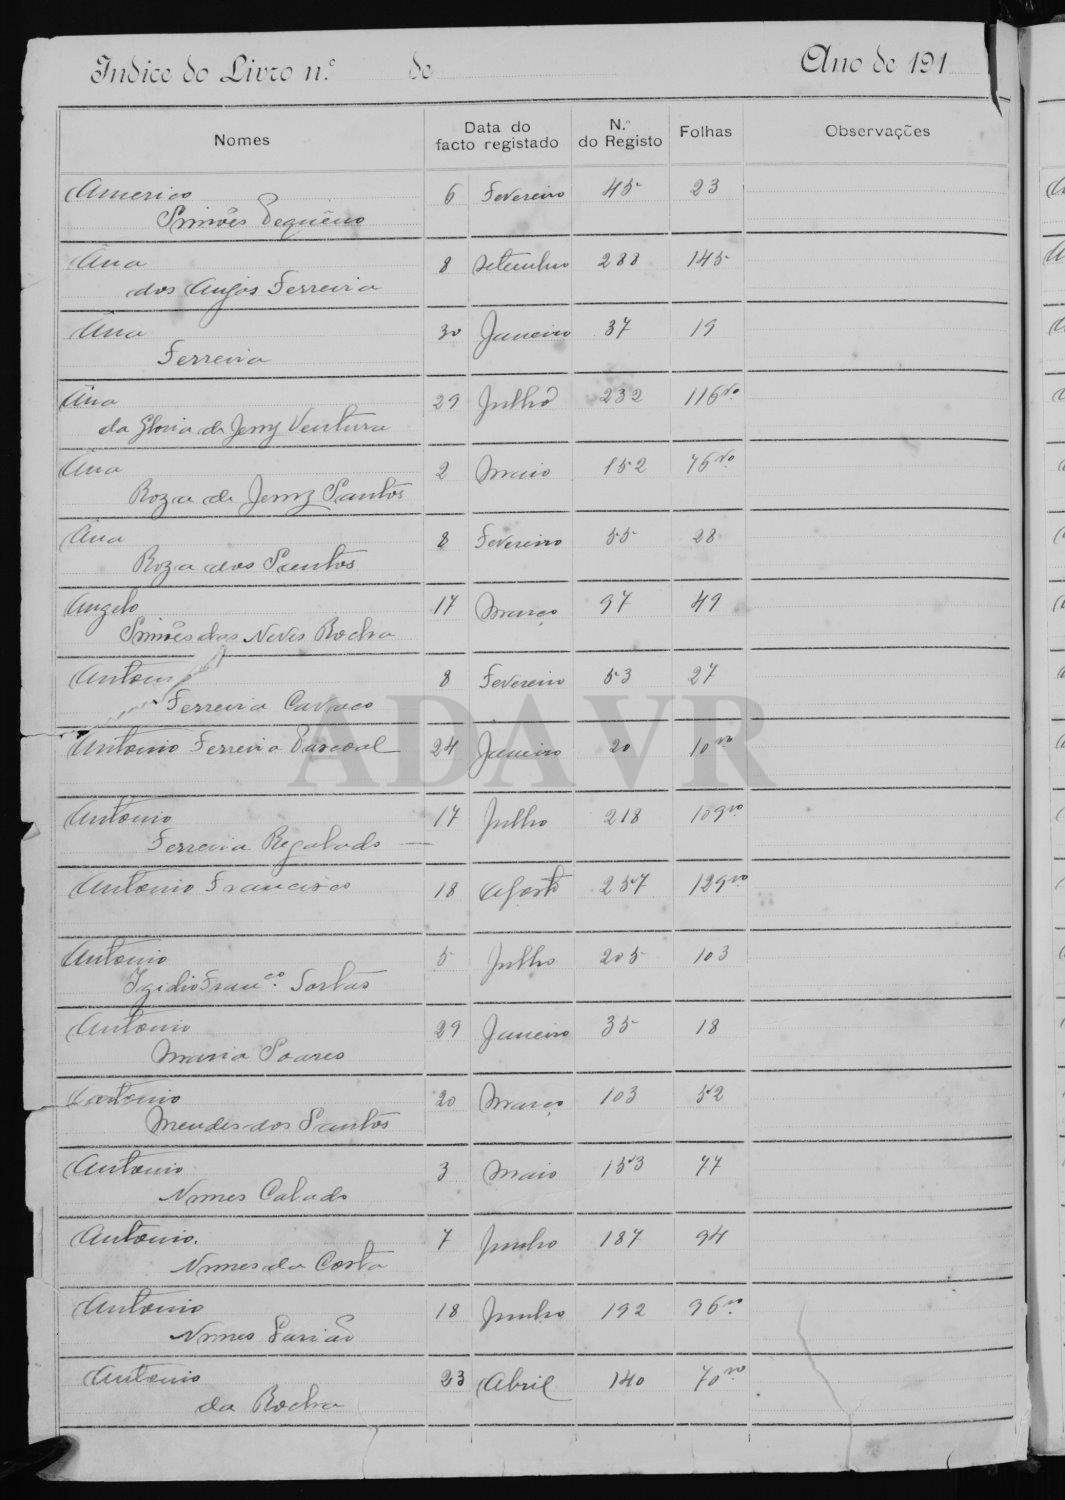 Indice do Livro n.º de Ano de 191
Nomes Data do facto registado N.º do Registo Folhas Observações
Americo
Simões Pequeno 6 Fevereiro 45 23
Ana
dos Anjos Ferreira 8 Setembro 288 145
Ana
Ferreira 30 Janeiro 37 19
Ana
da Gloria de Jesus Ventura 29 Julho 232 116vo.
Ana
Roza de Jesus Santos 2 Maio 152 76vo.
Ana
Roza dos Santos 8 Fevereiro 55 28
Angelo
Simões das Neves Rocha 17 Março 97 49
Antonio
Ferreira 8 Fevereiro 53 27
Antonio Ferreira Pascoal 24 Janeiro 20 10vo
Antonio
Ferreira Regalado 17 Julho 218 109vo.
Antonio Francisco 18 Agosto 257 129vo.
Antonio
Igidio Franco. 5 Julho 205 103
Antonio
Maria Soares 29 Janeiro 35 18
Antonio
Mendes dos Santos 20 Março 103 52
Antonio
Nunes Calado 3 Maio 153 77
Antonio.
Nunes da Costa 7 Junho 187 94
Antonio
Nunes 18 Junho 192 96vo.
Antonio
da Rocha 23 Abril 140 70vo.
ADAVR